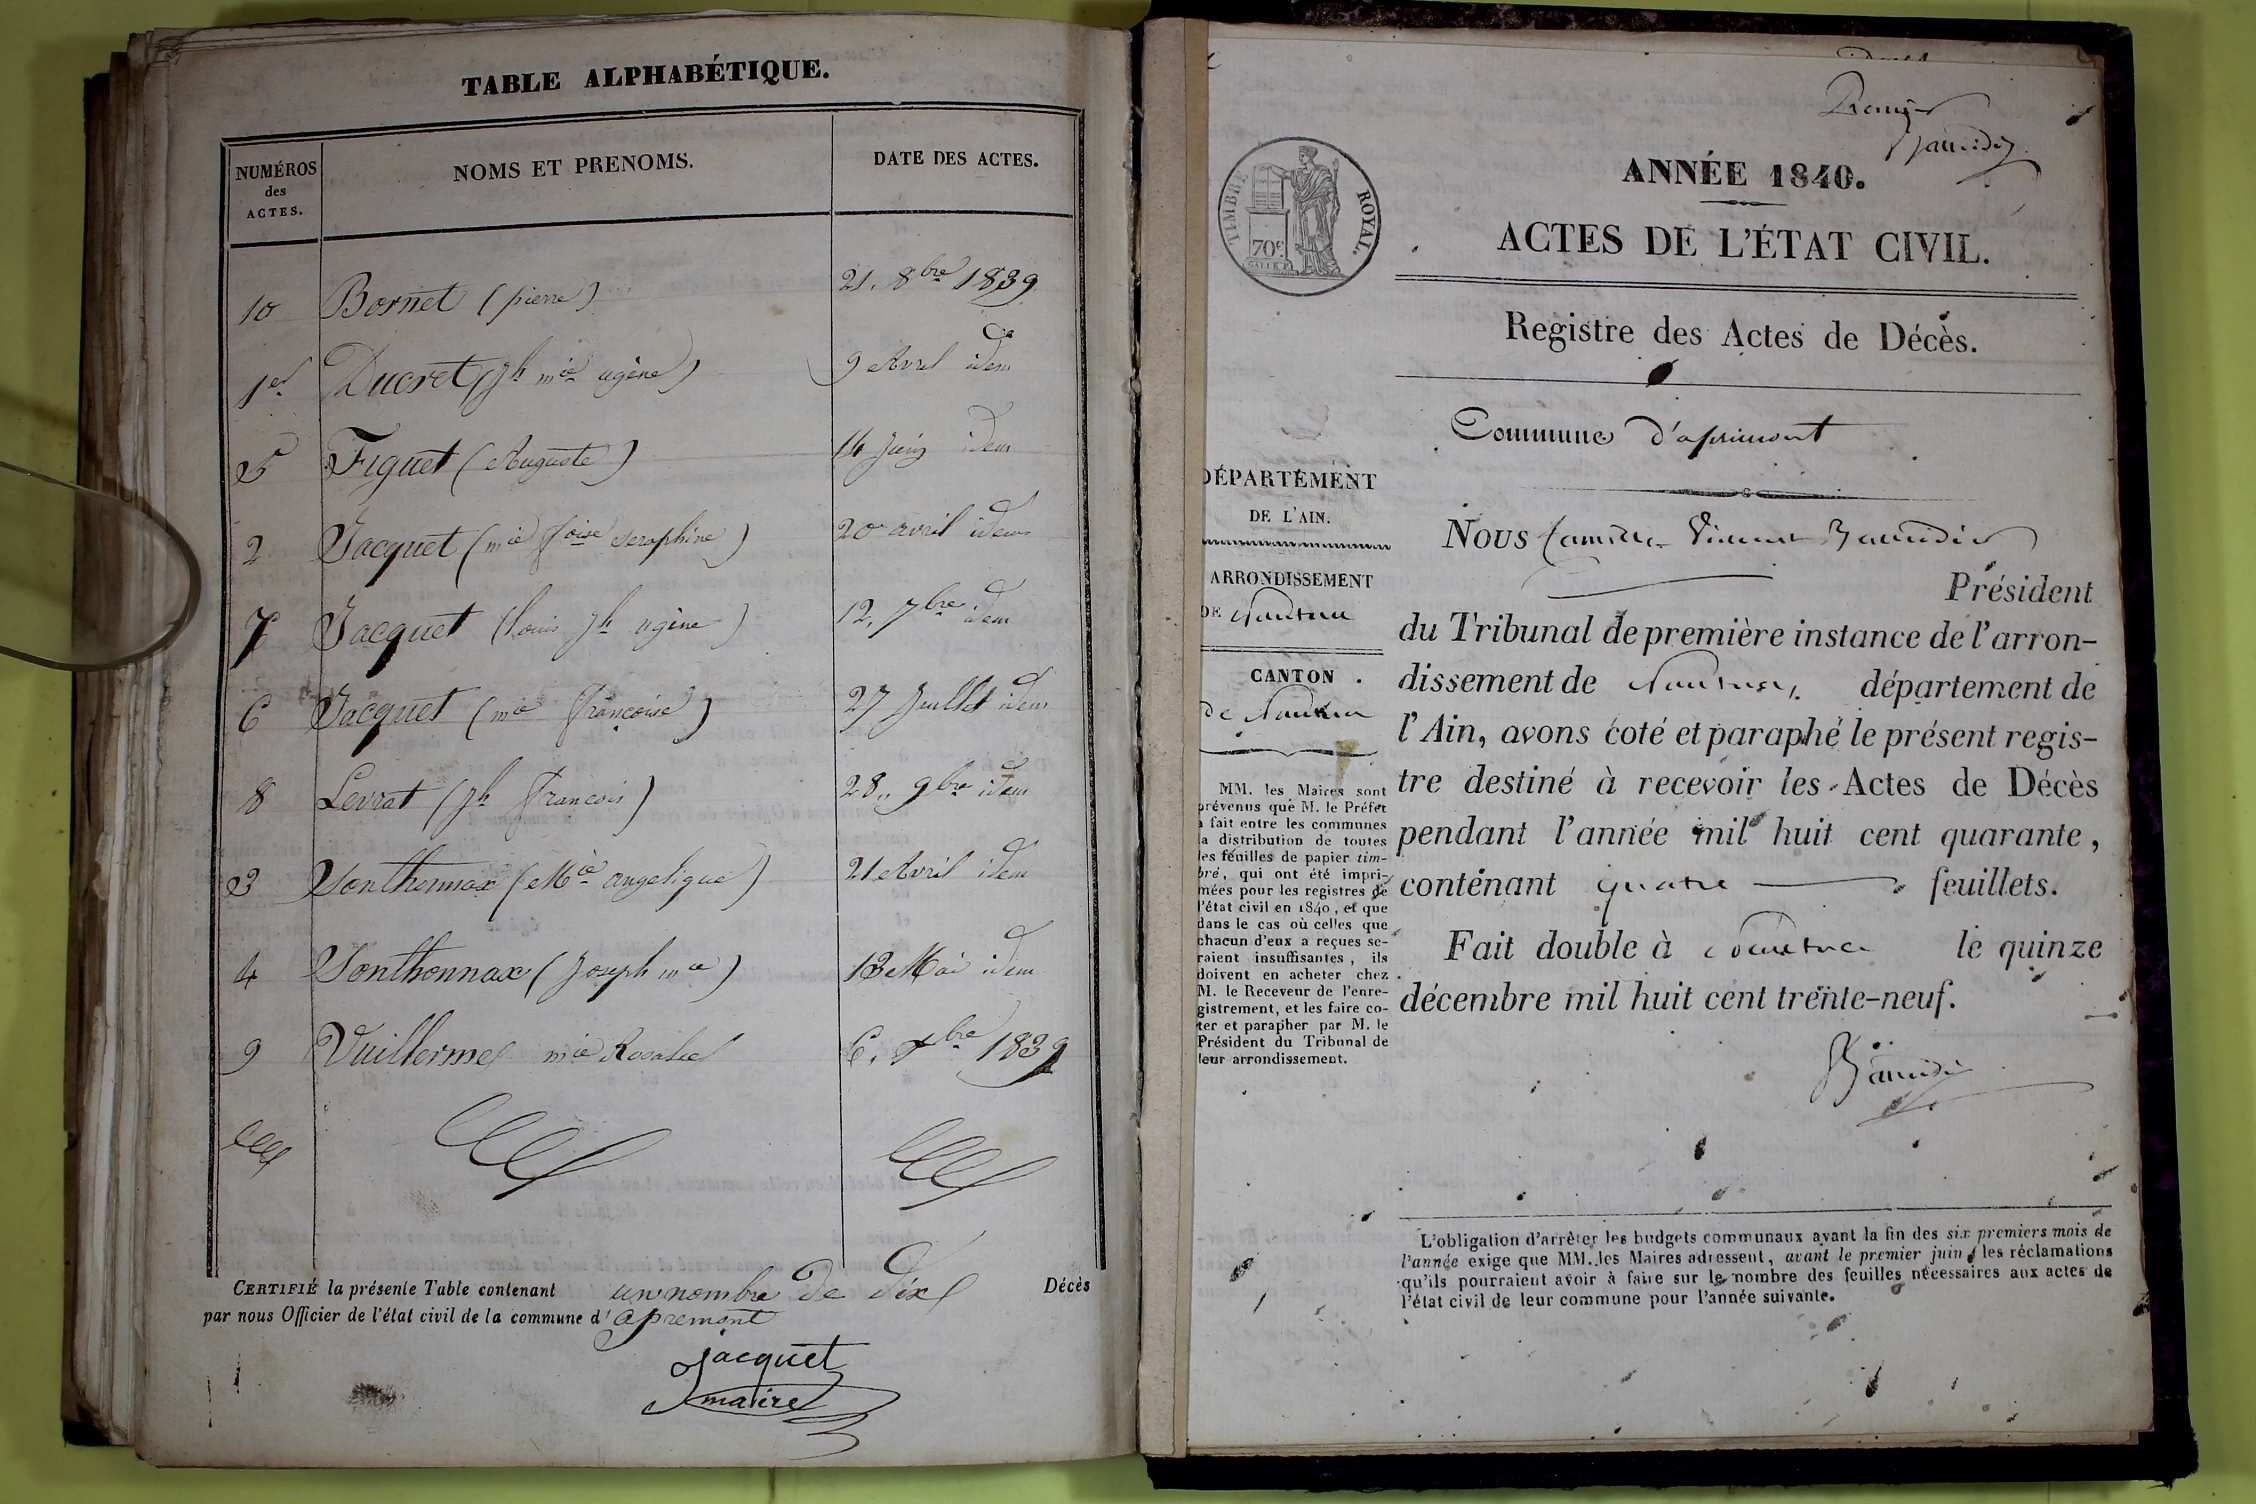 TABLE ALPHABÉTIQUE.
NUMÉROS des ACTES. NOMS ET PRENOMS. DATE DES ACTES.
10 Bornet (pierre) 21. 8bre 1839
1er Ducret (jh mie ugène) 9 Avril idem
5 Figuet (Auguste) 14 Juin idem
2 Jacquet (mie foise seraphine) 20 avril idem
7 Jacquet (Louis jh ugène) 12. 7bre idem
6 Jacquet (mie françoise) 27 Juillet idem
8 Levrat (jh francois) 28.. 9bre idem
3 Sonthonnax (Mie angelique) 21 Avril idem
4 Sonthonnax (Joseph mie) 13 Mai idem
9 Vuillerme mie Rosalie 6. Xbre 1839
CERTIFIÉ la présente Table contenant un nombre de dix Décès
par nous Officier de l'état civil de la commune d' apremont
jacquet
maire
Premier
TIMBRE ROYAL.
70c
ANNÉE 1840.
ACTES DE L'ÉTAT CIVIL.
Registre des Actes de Décès.
Commune d'aprimont
DÉPARTEMENT
DE L'AIN.
ARRONDISSEMENT
DE Nantua
CANTON
de Nantua
MM. les Maires sont
prévenus que M. le Préfet
a fait entre les communes
la distribution de toutes
les feuilles de papier tim-
bré, qui ont été impri-
mées pour les registres de
l'état civil en 1840, et que
dans le cas où celles que
chacun d'eux a reçues se-
raient insuffisantes, ils
doivent en acheter chez
M. le Receveur de l'enre-
gistrement, et les faire co-
ter et parapher par M. le
Président du Tribunal de
leur arrondissement.
Nous Camille Vincent Baudin
Président
du Tribunal de première instance de l'arron-
dissement de Nantua, département de
l'Ain, avons coté et paraphé le présent regis-
tre destiné à recevoir les Actes de Décès
pendant l'année mil huit cent quarante,
contenant quatre feuillets.
Fait double à Nantua le quinze
décembre mil huit cent trente-neuf.
L'obligation d'arrêter les budgets communaux avant la fin des six premiers mois de
l'année exige que MM. les Maires adressent, avant le premier juin, les réclamations
qu'ils pourraient avoir à faire sur le nombre des feuilles nécessaires aux actes de
l'état civil de leur commune pour l'année suivante.